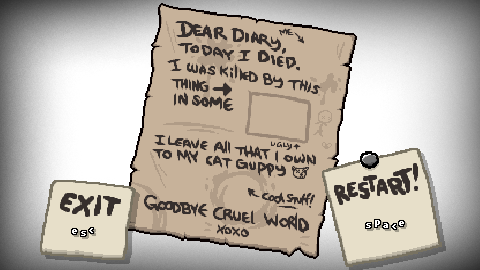 ME
DEAR DIARY,
TODAY I DIED.
I WAS KILLED BY THIS
THING
IN SOME
UGLY+
I LEAVE ALL THAT I OWN
TO MY CAT GUPPY
COOL STUFF!
GOODBYE CRUEL WORLD
XOXO
EXIT
esc
RESTART!
space